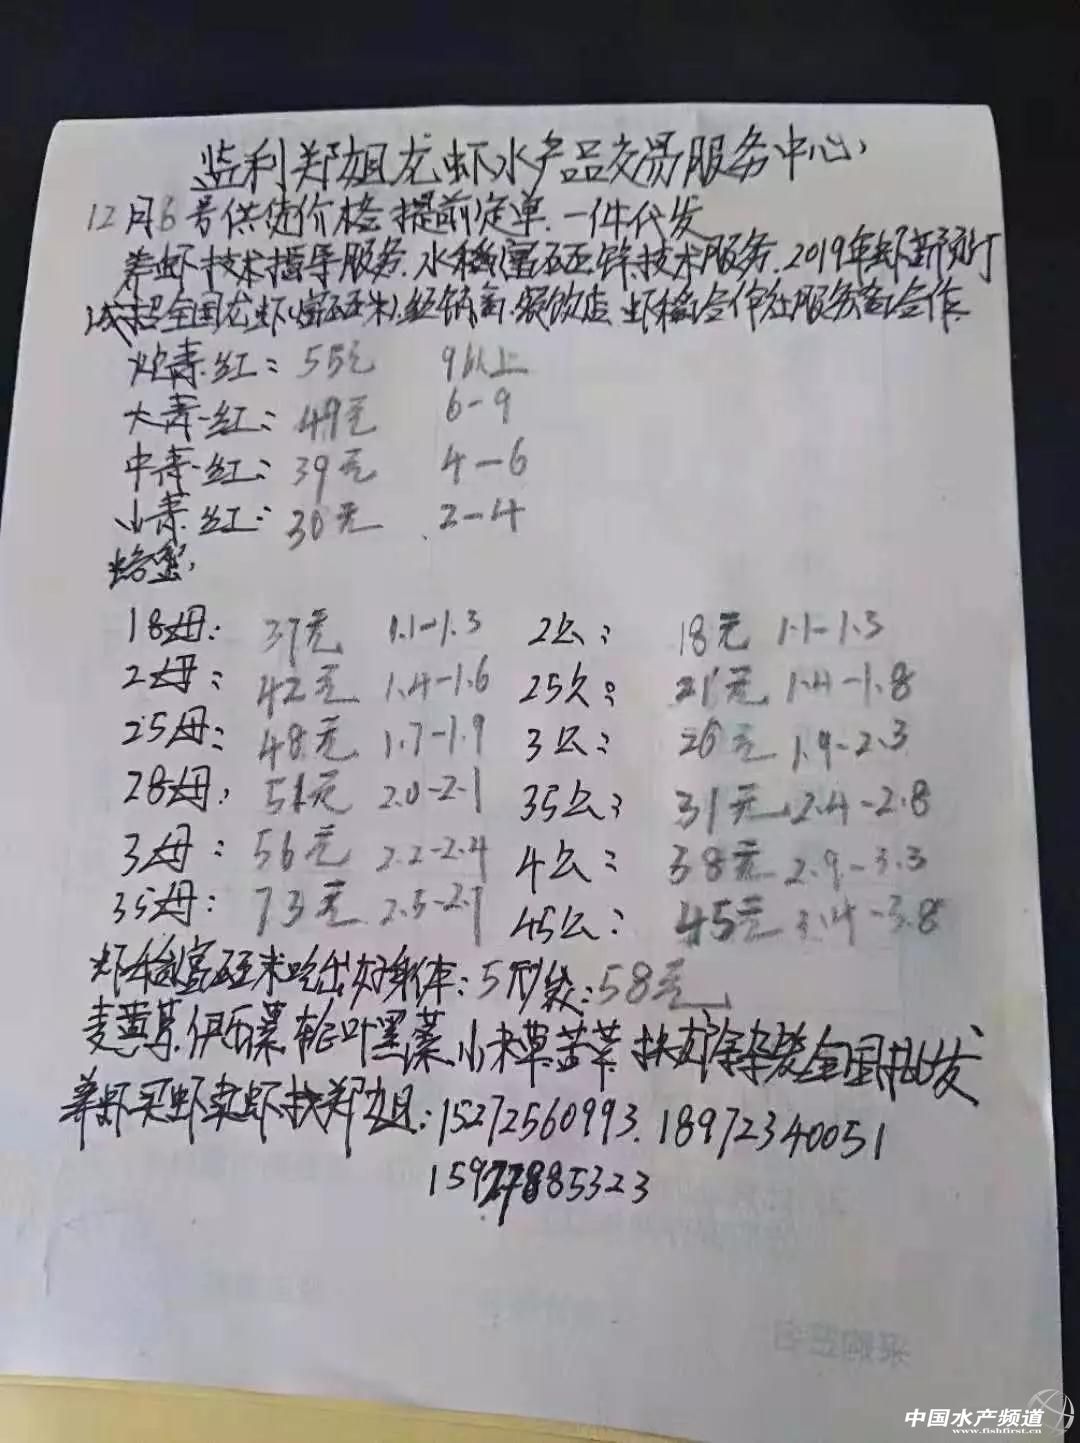 监利郑姐龙虾水产品交易服务中心
12月6号供货价格 提前定单.一件代发
养虾技术指导服务.水稻富硒锌技术服务.2019年虾苗预订
诚招全国龙虾(富硒米)经销商.餐饮店 虾稻合作社服务者合作
炮青.红: 55元 9以上
大青-红: 49元 6-9
中青-红: 39元 4-6
小青.红: 30元 2-4
螃蟹:
18母: 37元 1.1-1.3 2公: 18元 1.1-1.3
2母: 42元 1.4-1.6 25公: 21元 1.4-1.8
25母: 48元 1.7-1.9 3公: 26元 1.9-2.3
28母: 51元 2.0-2.1 35公: 31元 2.4-2.8
3母: 56元 2.2-2.4 4公: 38元 2.9-3.3
35母: 73元 2.5-2.7 45公: 45元 3.4-3.8
虾稻富硒米吃出好身体: 5 袋: 58元
伊乐藻.轮叶黑藻.小米草.苦草 全国批发
养虾买虾卖虾找郑姐: 15272560993. 18972340051
15927885323
中国水产频道
www.fishfirst.cn